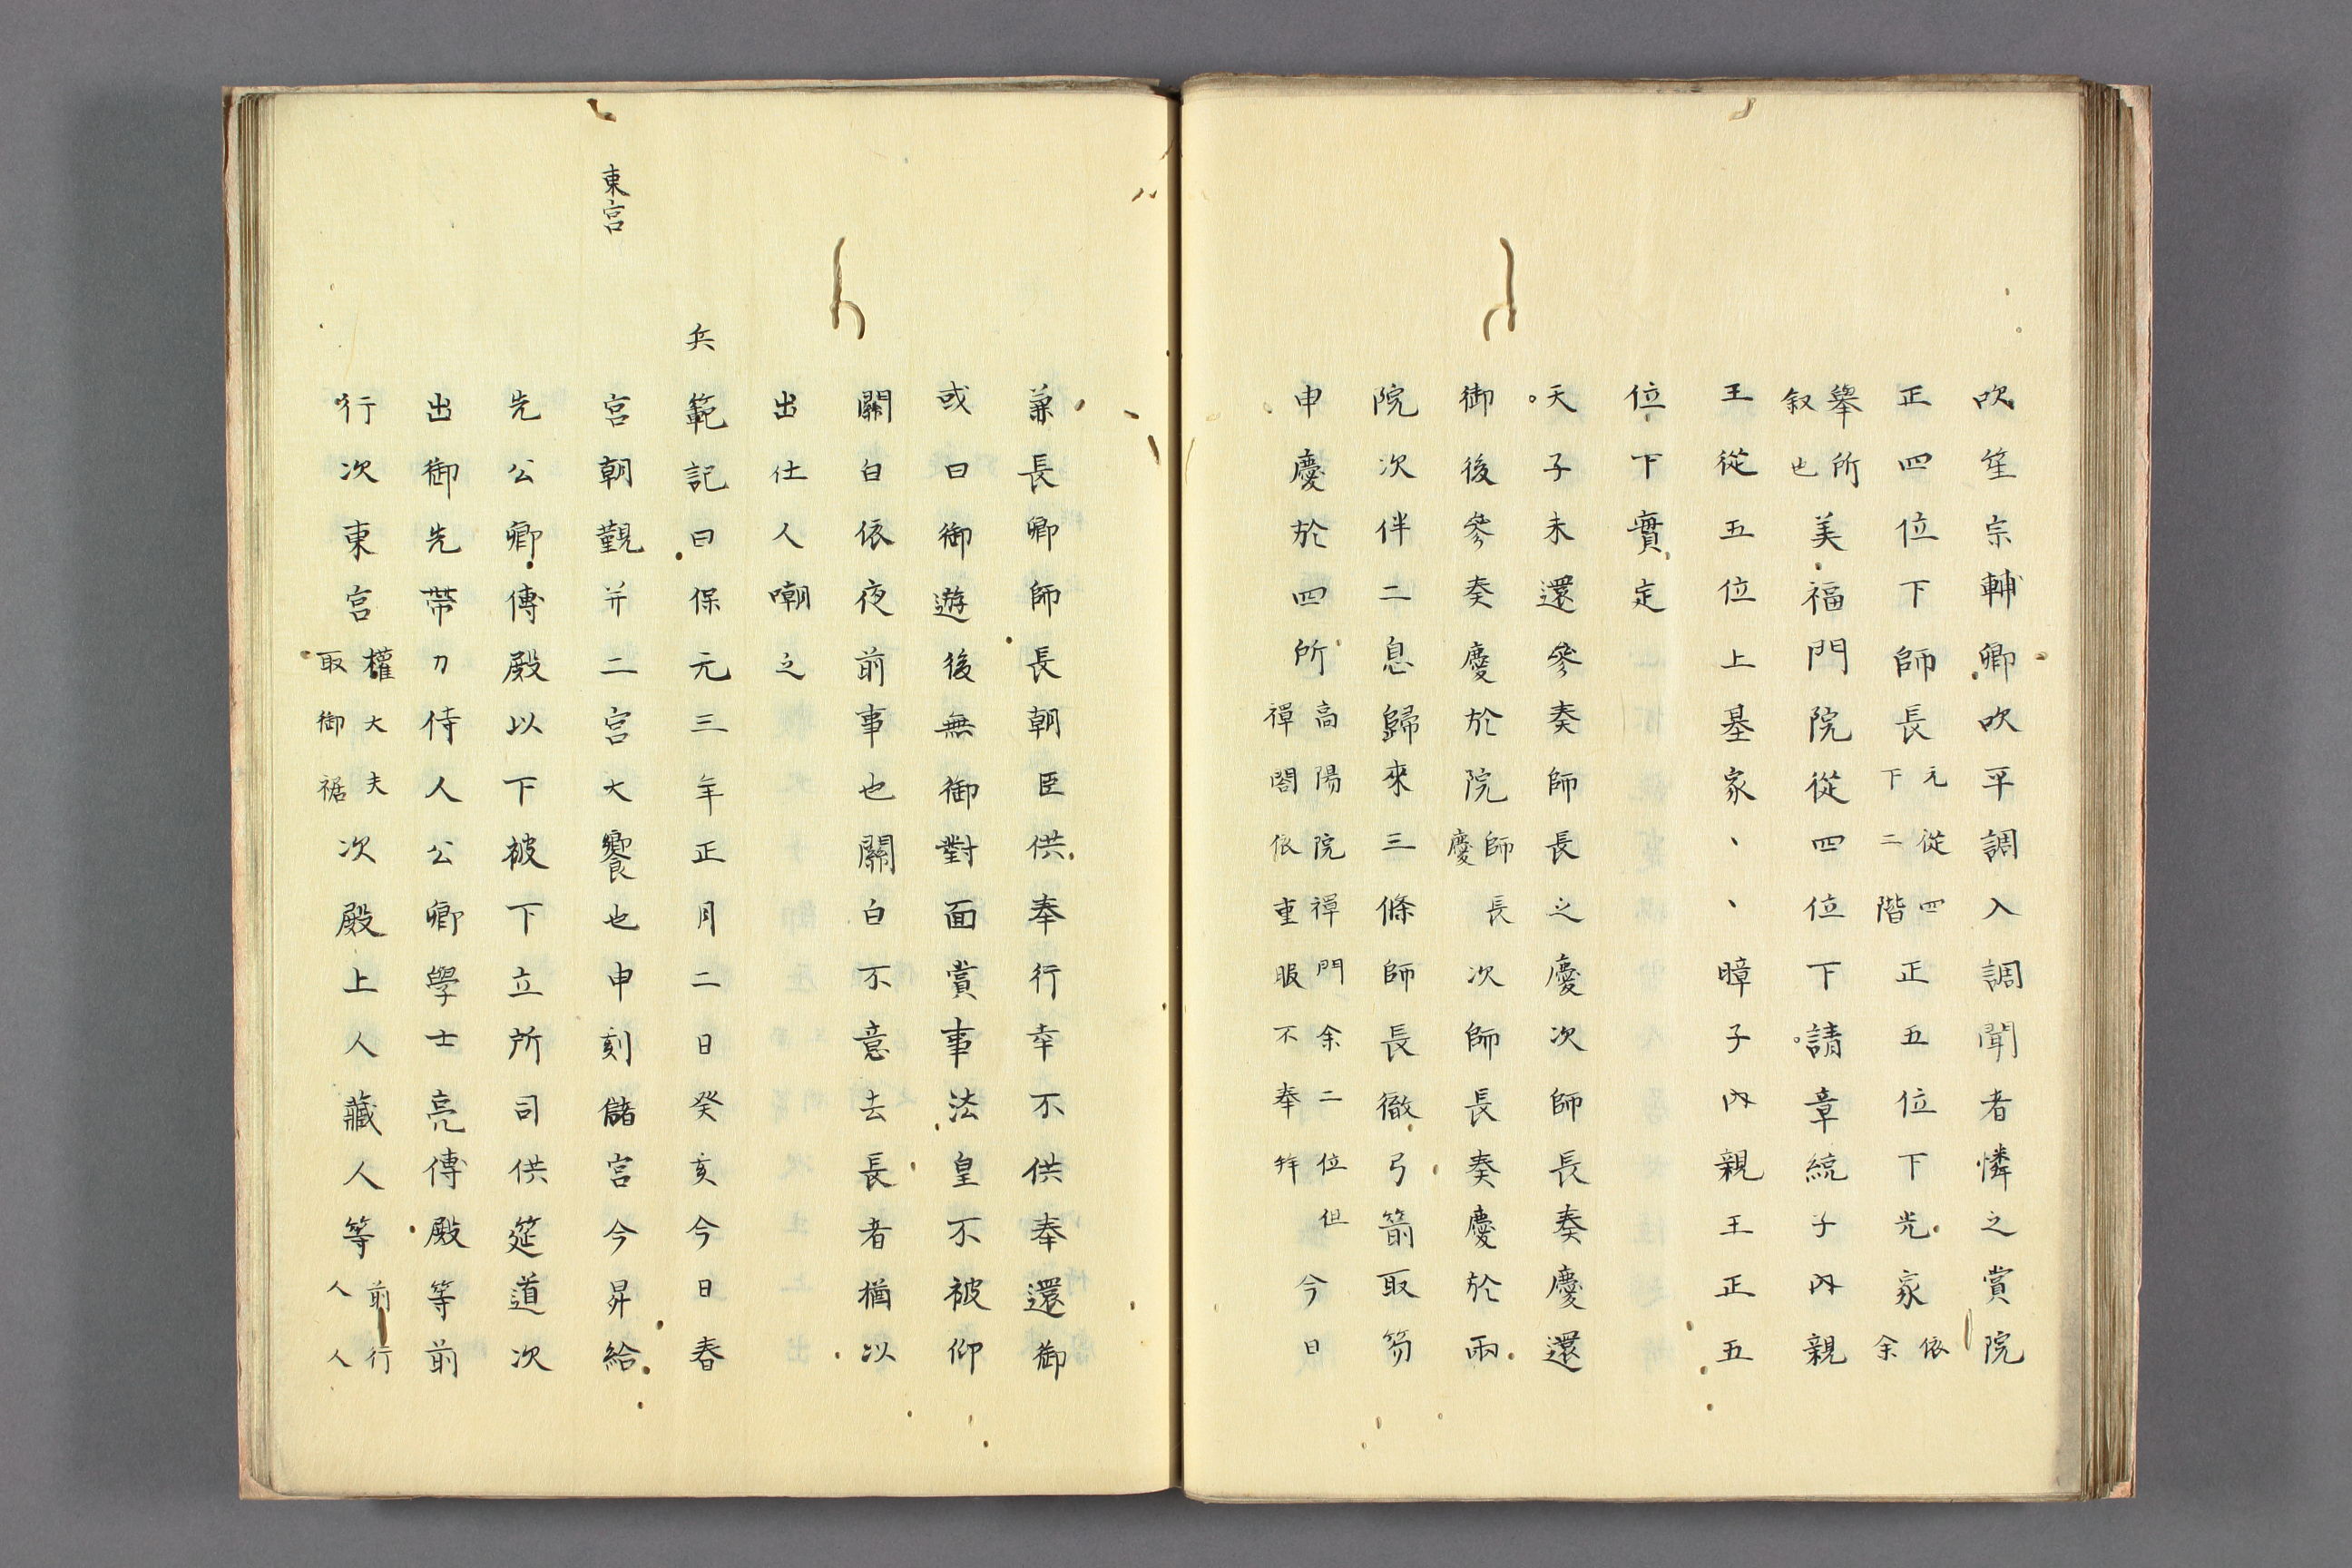 吹笙宗輔卿吹平調入調聞者憐之賞院
正四位下師長元從四下二階正五位下光家依余
舉所叙也美福門院從四位下請章統子内親
王從五位上基家、、暲子内親王正五
位下實定
天子未還參奏師長之慶次師長奏慶還
御後參奏慶於院師長慶次師長奏慶於兩
院次伴二息歸來三條師長徹弓箭取笏
申慶於四所高陽院禪門余二位但禪閤依重服不奉拜今日
兼長卿師長朝臣供奉行幸不供奉還御
或曰御遊後無御對面賞事法皇不被仰
關白依夜前事也關白不意去長者猶以
出仕人嘲之
兵範記曰保元三年正月二日癸亥今日春
東宮
宮朝覲并二宮大饗也申刻儲宮今昇給
先公卿傅殿以下被下立所司供筵道次
出御先帶刀侍人公卿學士亮傅殿等前
行次東宮權大夫取御裾次殿上人藏人等前行人人